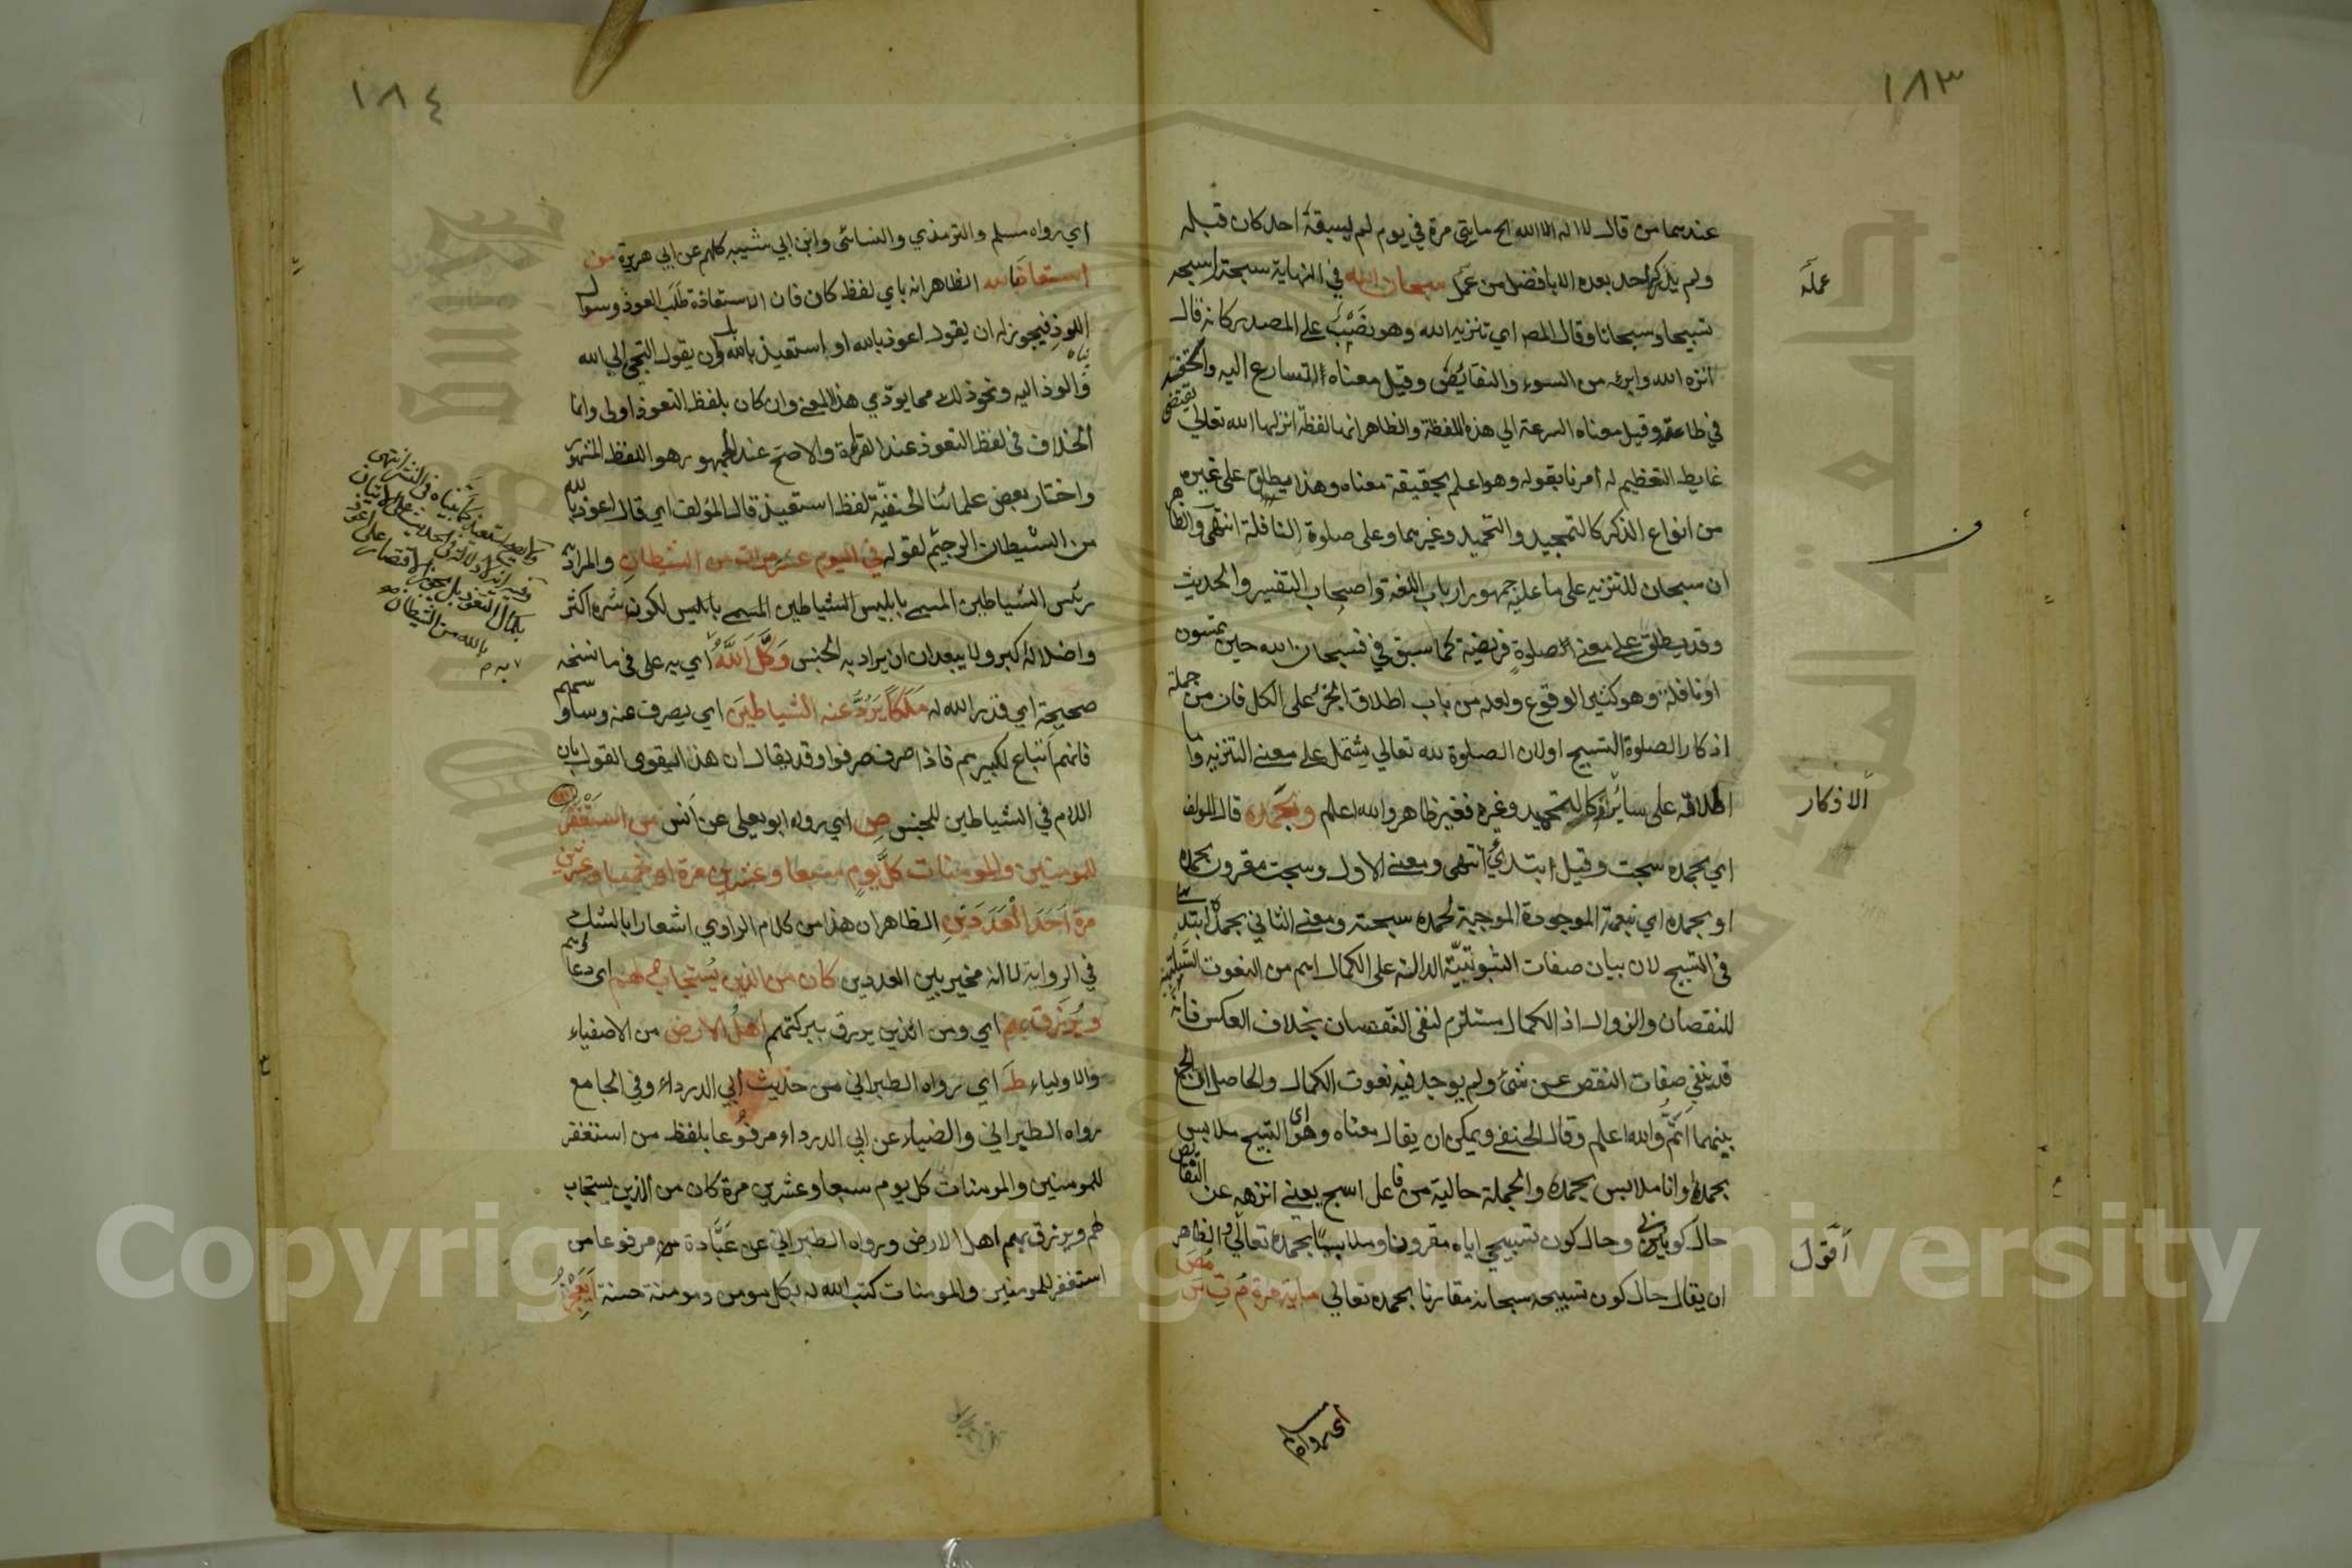 ١٨٣
عندهما من قال لا اله الا الله الخ مايتي مرة في يوم لم يسبقه احد كان قبله
ولم يدركه احد بعده الا بافضل من عمل سبحان الله في النهاية سبحته اسبحه
عمله
تسبيحا وسبحانا وقال المص اي تنزيه الله وهو نصب على المصدر كانه قال
انزه الله وابرئه من السوء والنقائص وقيل معناه التسارع اليه والخفة
في طاعته وقيل معناه السرعة الي هذه اللفظة والظاهر انها لفظة انزلها الله تعالي يقتضى
غاية التعظيم له أمرنا بقوله وهو اعلم بحقيقة معناه وهذا يطلق على غيره
من انواع الذكر كالتمجيد والتحميد وغيرهما وعلى صلوة النافلة انتهى والظاهر
ان سبحان للتنزيه على ما عليه جمهور ارباب اللغة واصحاب التفسير والحديث
وقد يطلق على معنى الصلوة فريضة كما سبق في فسبحان الله حين تمسون
او نافلة وهو كثير الوقوع ولعله من باب اطلاق الجزء على الكل فان من جملة
اذكار الصلوة التسبيح اولان الصلوة لله تعالي يشتمل على معنى التنزيه واما
اطلاقه على سائر كالتحميد وغيره فغير ظاهر والله اعلم وبحمده قال المولف
الاذكار
اي بحمده سبحت وقيل ابتدئ انتهى ومعنى الاول وسبحت مقرون بحمده
او بحمده اي نبعمة الموجودة الموجبة لحمده سبحته ومعنى الثاني بحمده ابتدئ
في التسبيح لان بيان صفات الثبوتية الدالة على الكمال اهم من النعوت السلبية
للنقصان والزوال اذ الكمال مستلزم لنفى النقصان بخلاف العكس فانه
قد ينفي صفات النقص عن شئ ولم يوجد فيه نعوت الكمال والحاصل ان الجمع
بينهما اتم والله اعلم وقال الحنفي ويمكن ان يقال معناه وهو اى التسبيح ملابس
بحمده وانا ملابس بحمده والجملة حالية من فاعل اسبح يعنى انزهه عن النقائص
حال كوني وحال كون تسبيحي اياه مقرونا وملابسا بحمده تعالى والظاهر
أقول
ان يقال حال كون تسبيحه سبحانه مقارنا بحمده تعالي ماية مرة م ت س مص
اى رواه مسلم
١٨٤
اي رواه مسلم والترمذي والنسائى وابن ابي شيبه كلهم عن ابي هريرة من
استعاذ بالله الظاهر انه باي لفظ كان فان الاستعاذة طلب العوذ وسوال
اللوذ فيجوز له ان يقول اعوذ بالله او استعيذ بالله وان يقول التجي الي الله
والوذ اليه ونحو ذلك مما يودي هذا المعنى وان كان بلفظ التعوذ اولى وانما
الخلاف في لفظ التعوذ عند القراءة والاصح عند الجمهور هو اللفظ المشهور
واختار بعض علمائنا الحنفية لفظ استعيذ قال المؤلف اي قال اعوذ بالله
من الشيطان الرجيم لقوله في اليوم عشر مرات من الشيطان والمراد به
رئس الشياطين المسمى بابليس الشياطين المسمى بابليس لكون شره اكثر
واضلاله اكبر ولا يبعد ان ان يراد به الجنس وكل الله اي به على في ما نسخه
صحيحة اي قدر الله له ملكا يرد عنه الشياطين اي يصرف عنه وساوسهم
فانهم اتباع لكبيرهم فاذا صرف صرفوا وقد يقال ان هذا يقوى القول بان
اللام في الشياطين للجنس ص اي رواه ابو يعلى عن انس من استغفر
للمومنين والمومنات كل يوم سبعا وعشرين مرة او خمسا وعشرين
مرة احد العددين الظاهر ان هذا من كلام الراوي اشعارا بالشك
في الرواية لا انه مخير بين العددين كان من الذين يستجاب لهم اى دعاؤهم
ويرزق بهم اي ومن الذين يرزق ببركتهم اهل الارض من الاصفياء
والاولياء ط اي رواه الطبراني من حديث أبي الدرداء وفي الجامع
رواه الطبراني والضياء عن ابي الدرداء مرفوعا بلفظ من استغفر
للمومنين والمومنات كل يوم سبعا وعشرين مرة كان من الذين يستجاب
لهم ويرزق بهم اهل الارض ورواه الطبراني عن عبادة مرفوعا من
استغفر للمومنين والمومنات كتب الله له بكل مومن ومومنة حسنة
Copyright © King Saud University